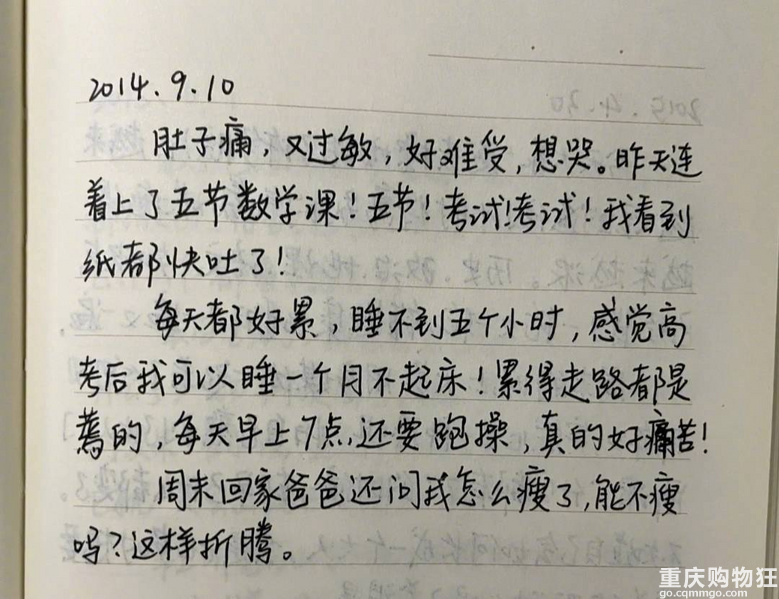 2014.9.10
肚子痛，又过敏，好难受，想哭。昨天连
着上了五节数学课！五节！考试！考试！我看到
纸都快吐了！
每天都好累，睡不到五个小时，感觉高
考后我可以睡一个月不起床！累得走路都是
蔫的，每天早上7点，还要跑操，真的好痛苦！
周末回家爸爸还问我怎么瘦了，能不瘦
吗？这样折腾。
重庆购物狂
go.cqmmgo.com